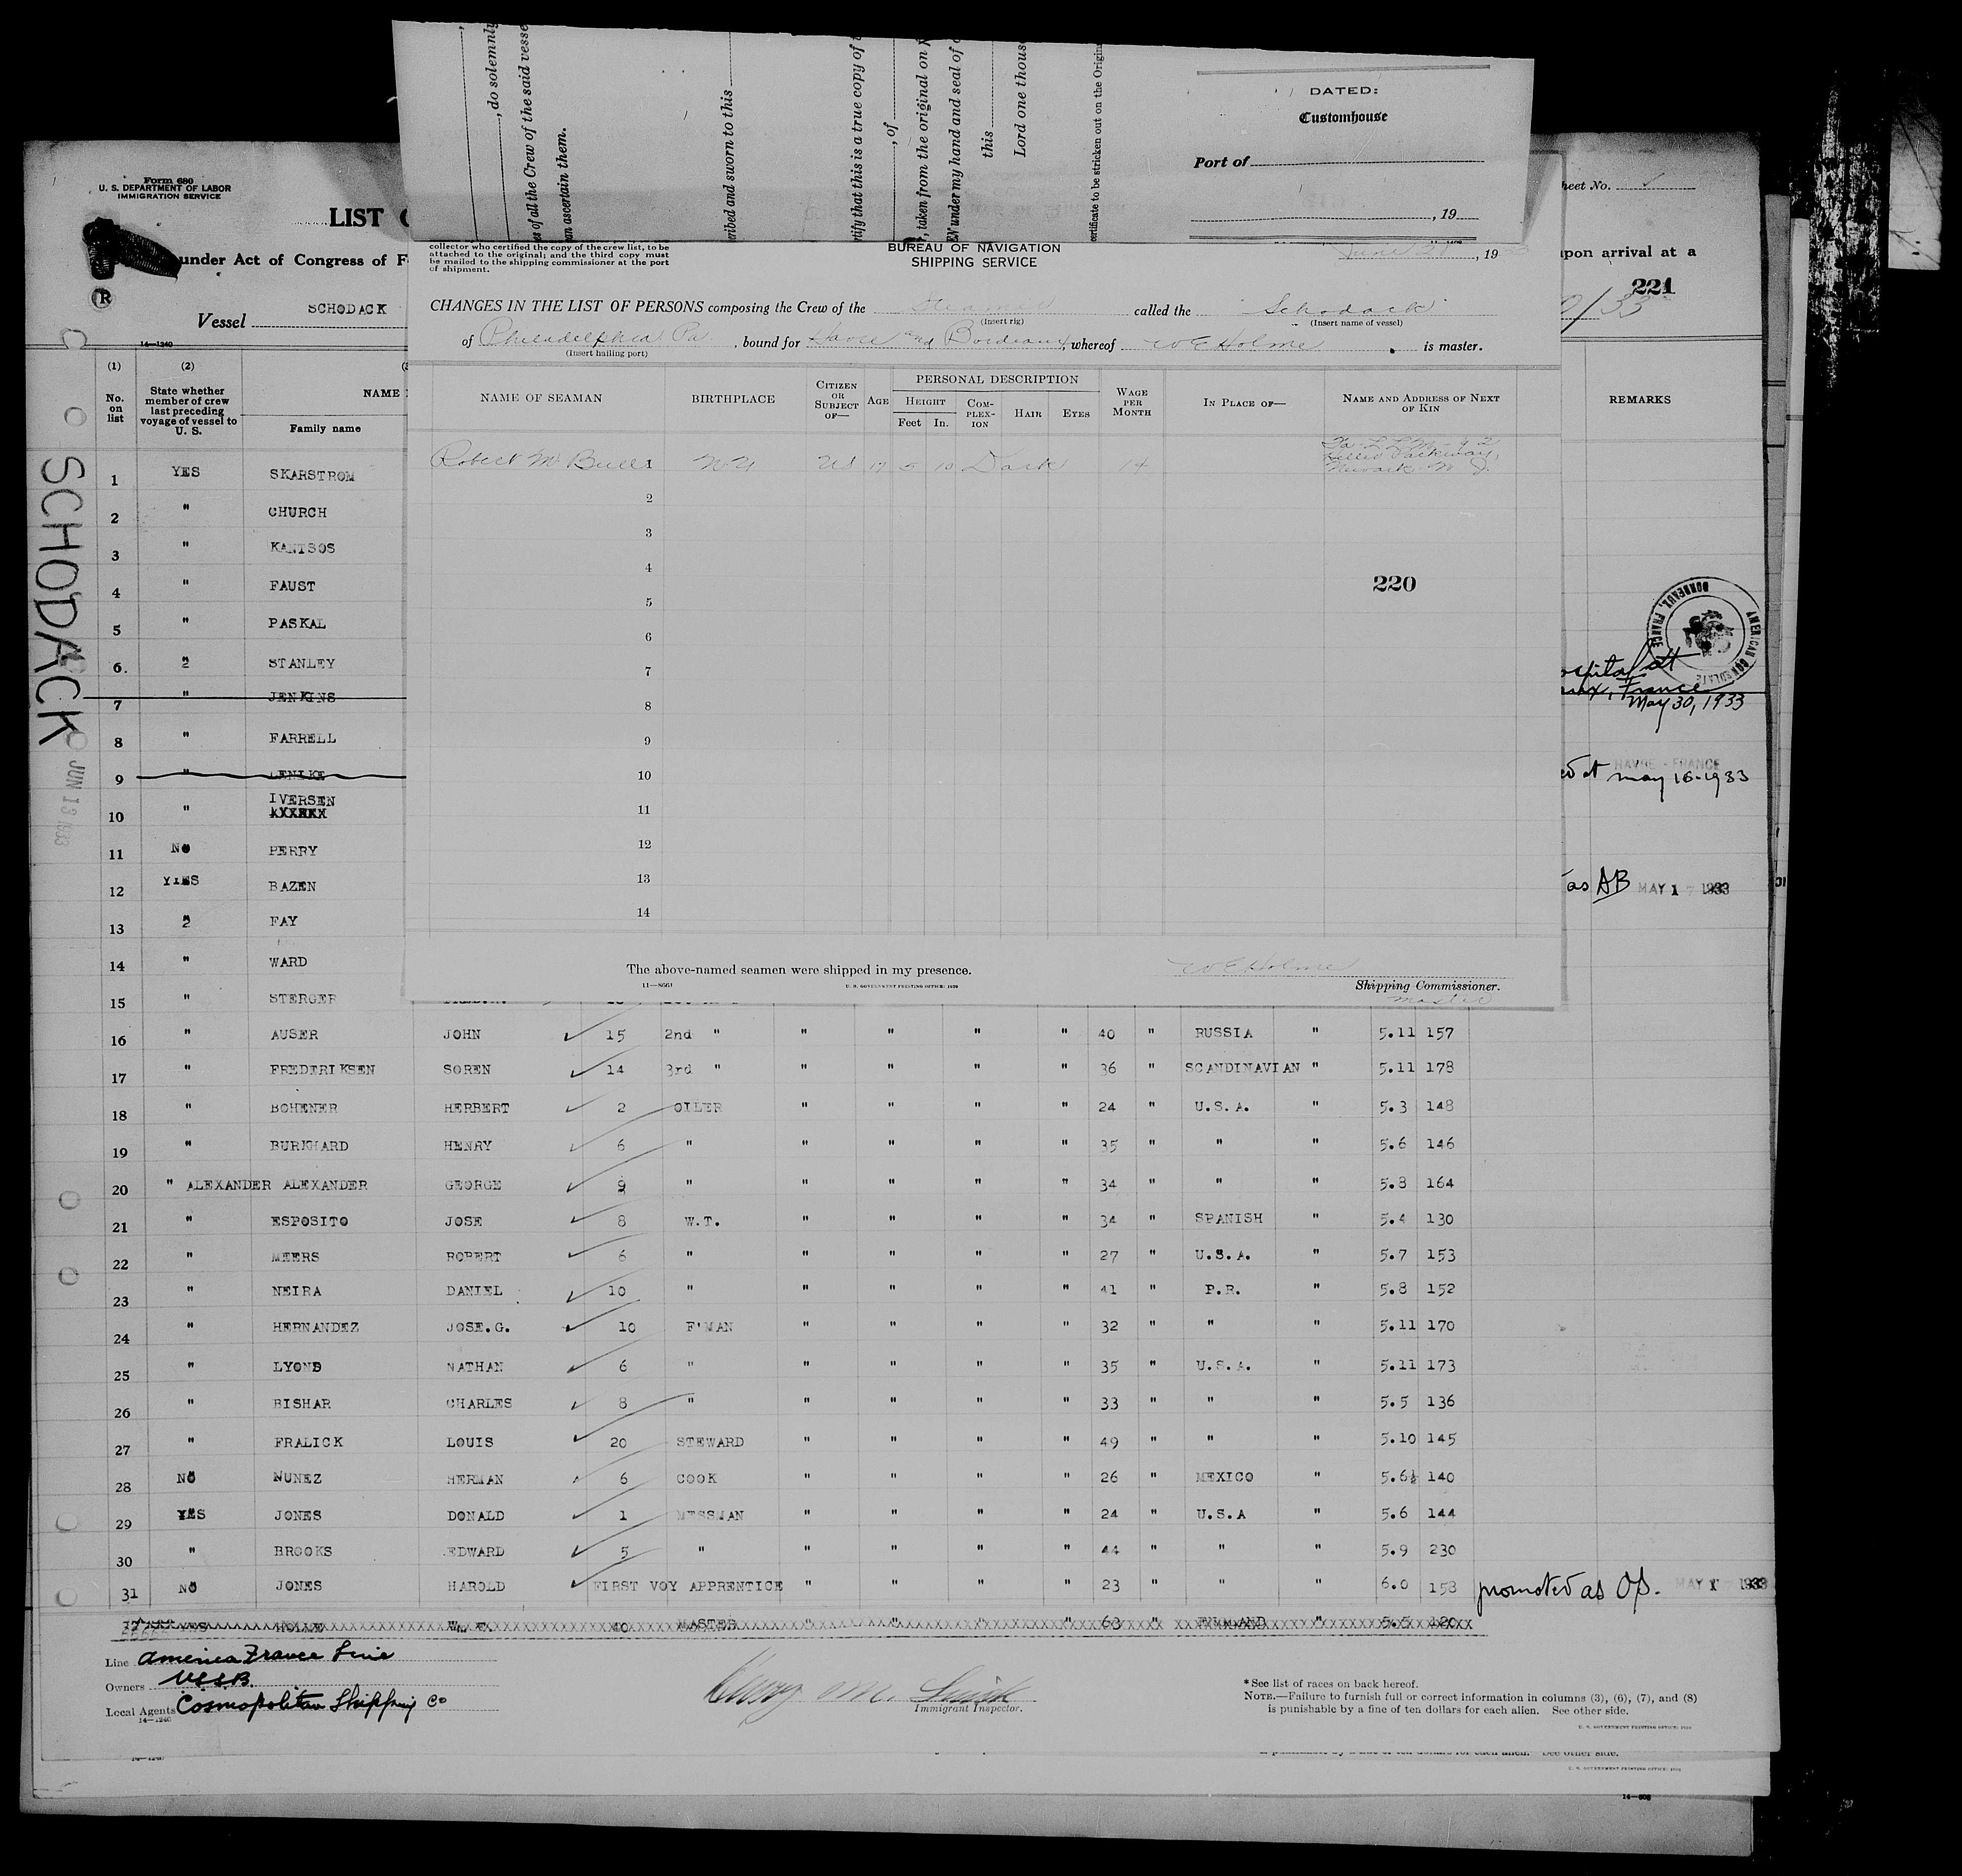 , do solemnly
es of all the Crew of the said vesse
an ascertain them.
ribed and sworn to this
rtify that this is a true copy of
, of
, taken from the original on
under my hand and seal of
this
Lord one thous
certificate to be stricken out on the Origin
DATED:
Customhouse
Port of
, 19
Form 680
U. S. DEPARTMENT OF LABOR
IMMIGRATION SERVICE
LIST
heet No.
under Act of Congress of F
upon arrival at a
221
Vessel SCHODACK
14—1240
collector who certified the copy of the crew list, to be
attached to the original; and the third copy must
be mailed to the shipping commissioner at the port
of shipment.
BUREAU OF NAVIGATION
SHIPPING SERVICE
, 19
CHANGES IN THE LIST OF PERSONS composing the Crew of the Steamer called the Schodack
(Insert rig) (Insert name of vessel)
of Philadelphia Pa , bound for Havre and Bordeaux, whereof W E Holme is master.
(Insert hailing port)
NAME OF SEAMAN BIRTHPLACE CITIZEN OR SUBJECT OF— AGE PERSONAL DESCRIPTION HEIGHT Feet In. COMPLEXION HAIR EYES WAGE PER MONTH IN PLACE OF— NAME AND ADDRESS OF NEXT OF KIN
Robert M 1 N Y US 5 10 Dark
Parkway,
Newark N J.
2
3
4
5
6
7
8
9
10
11
12
13
14
220
The above-named seamen were shipped in my presence.
W E Holme
Shipping Commissioner.
master
11—8661
U. S. GOVERNMENT PRINTING OFFICE: 1929
(1) (2)
No. on list
State whether member of crew last preceding voyage of vessel to U. S.
NAME
Family name
REMARKS
1 YES SKARSTROM
2 " CHURCH
3 " KANTSOS
4 " FAUST
5 " PASKAL
6. " STANLEY
7 " JENKINS
8 " FARRELL
9 " LEMIKE
10 " IVERSEN
11 NO PERRY
12 YES BAZEN
13 " FAY
14 " WARD
15 " STERGER
AMERICAN CONSULATE
BORDEAUX, FRANCE
ospital at
aux, France
May 30, 1933
HAVRE - FRANCE
ed at May 16-1933
as AB MAY 17 1933
16 " AUSER JOHN 15 2nd " " " " " 40 " RUSSIA " 5.11 157
17 " FREDERIKSEN SOREN 14 3rd " " " " " 36 " SCANDINAVIAN " 5.11 178
18 " BOHENER HERBERT 2 OILER " " " " 24 " U.S.A. " 5.3 148
19 " BURKHARD HENRY 6 " " " " " 35 " " " 5.6 146
20 " ALEXANDER ALEXANDER GEORGE 9 " " " " " 34 " " " 5.8 164
21 " ESPOSITO JOSE 8 W.T. " " " " 34 " SPANISH " 5.4 130
22 " MEERS ROBERT 6 " " " " " 27 " U.S.A. " 5.7 153
23 " NEIRA DANIEL 10 " " " " " 41 " P.R. " 5.8 152
24 " HERNANDEZ JOSE.G. 10 F'MAN " " " " 32 " " " 5.11 170
25 " LYONS NATHAN 6 " " " " " 35 " U.S.A. " 5.11 173
26 " BISHAR CHARLES 8 " " " " " 33 " " " 5.5 136
27 " FRALICK LOUIS 20 STEWARD " " " " 49 " " " 5.10 145
28 NO NUNEZ HERMAN 6 COOK " " " " 26 " MEXICO " 5.6½ 140
29 YES JONES DONALD 1 MESSMAN " " " " 24 " U.S.A " 5.6 144
30 " BROOKS EDWARD 5 " " " " " 44 " " " 5.9 230
31 NO JONES HAROLD FIRST VOY APPRENTICE " " " " 23 " " " 6.0 158 promoted as OS. MAY 17 1933
YES W. E. 40 MASTER " " " " 63 " " 5.5 120
Line America France Line
Owners U.S.S.B.
Local Agents Cosmopolitan Shipping Co
14—1240
Immigrant Inspector.
* See list of races on back hereof.
NOTE.—Failure to furnish full or correct information in columns (3), (6), (7), and (8)
is punishable by a fine of ten dollars for each alien. See other side.
U. S. GOVERNMENT PRINTING OFFICE
SCHODACK
JUN 13 1933